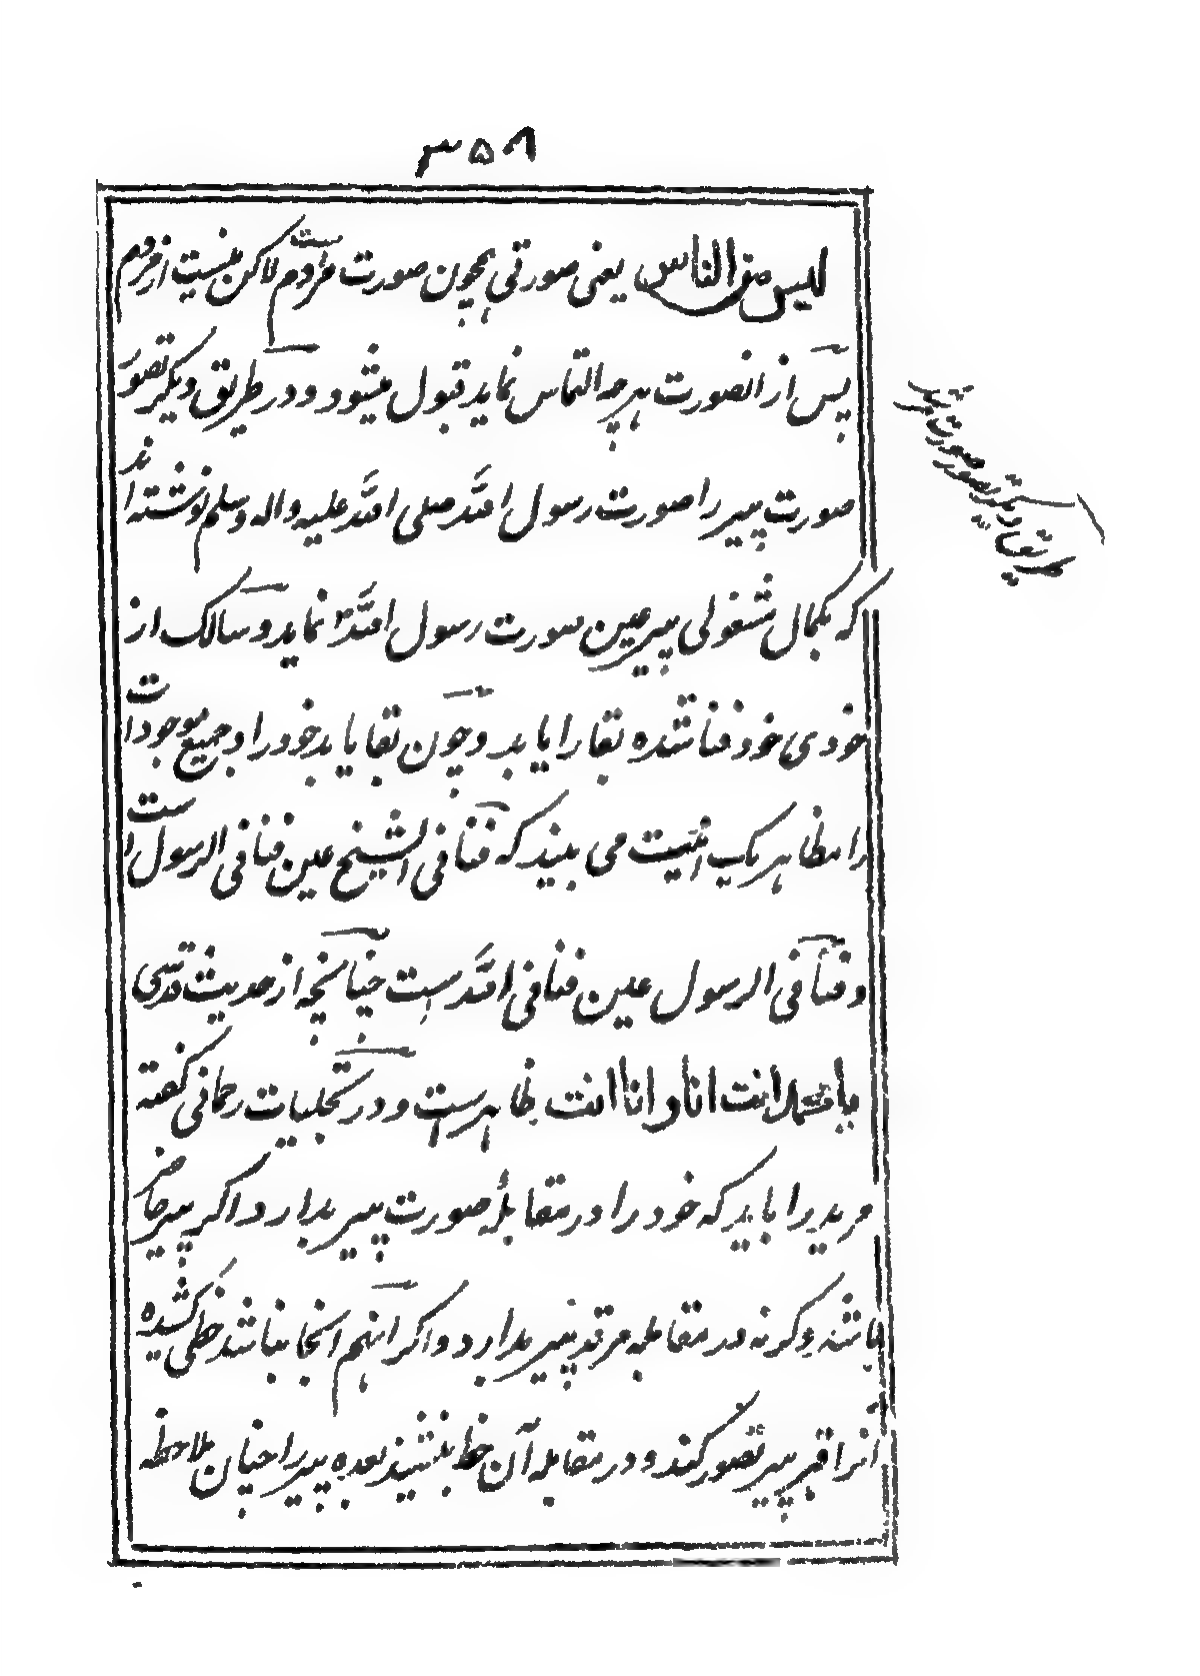 ۳۵۸
لیس من الناس یعنی صورتی همچون صورت مردم است لاکن نیست از مردم
پس از انصورت هرچه التماس نماید قبول میشود و در طریق دیگر تصور
صورت پیر را صورت رسول الله صلی الله علیه واله وسلم نوشته اند
که بکمال شغولی پیر عین صورت رسول الله نماید و سالک از
خودی خود فنا شده بقا را یابد و چون بقا یابد خود را و جمیع موجودات
را مظاهر یک انیت می بیند که فنا فی الشیخ عین فنا فی الرسول است
و فنا فی الرسول عین فنا فی الله است چنانچه از حدیث قدسی
یا محمد انت انا و انا انت ظاهرست و در تجلیات رحمانی گفته
مرید را باید که خود را در مقابلهٔ صورت پیر بدارد اکر پیر حاضر
باشد وگرنه در مقابله مرقد پیر بدارد و اکر اینهم انجا نباشد خطی کشیده
انرا قبر پیر تصور کند و در مقابله آن خط بنشیند بعده پیر را چنان ملاحظه
طریق دیگر تصور صورت مرشد